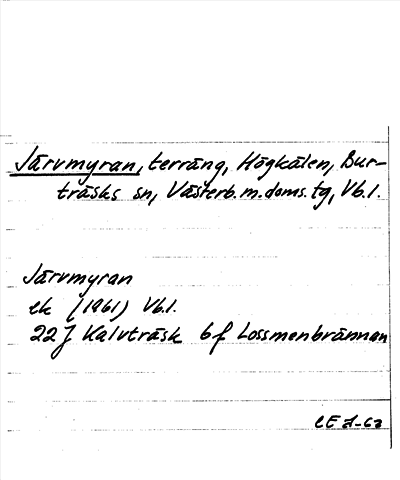 Järvmyran, terräng, Högkålen, Bur-
träsks sn, Västerb.m.doms.tg, Vb.l.
Järvmyran
ek (1961) Vb.l.
22J Kalvträsk 6f Lossmenbrännan